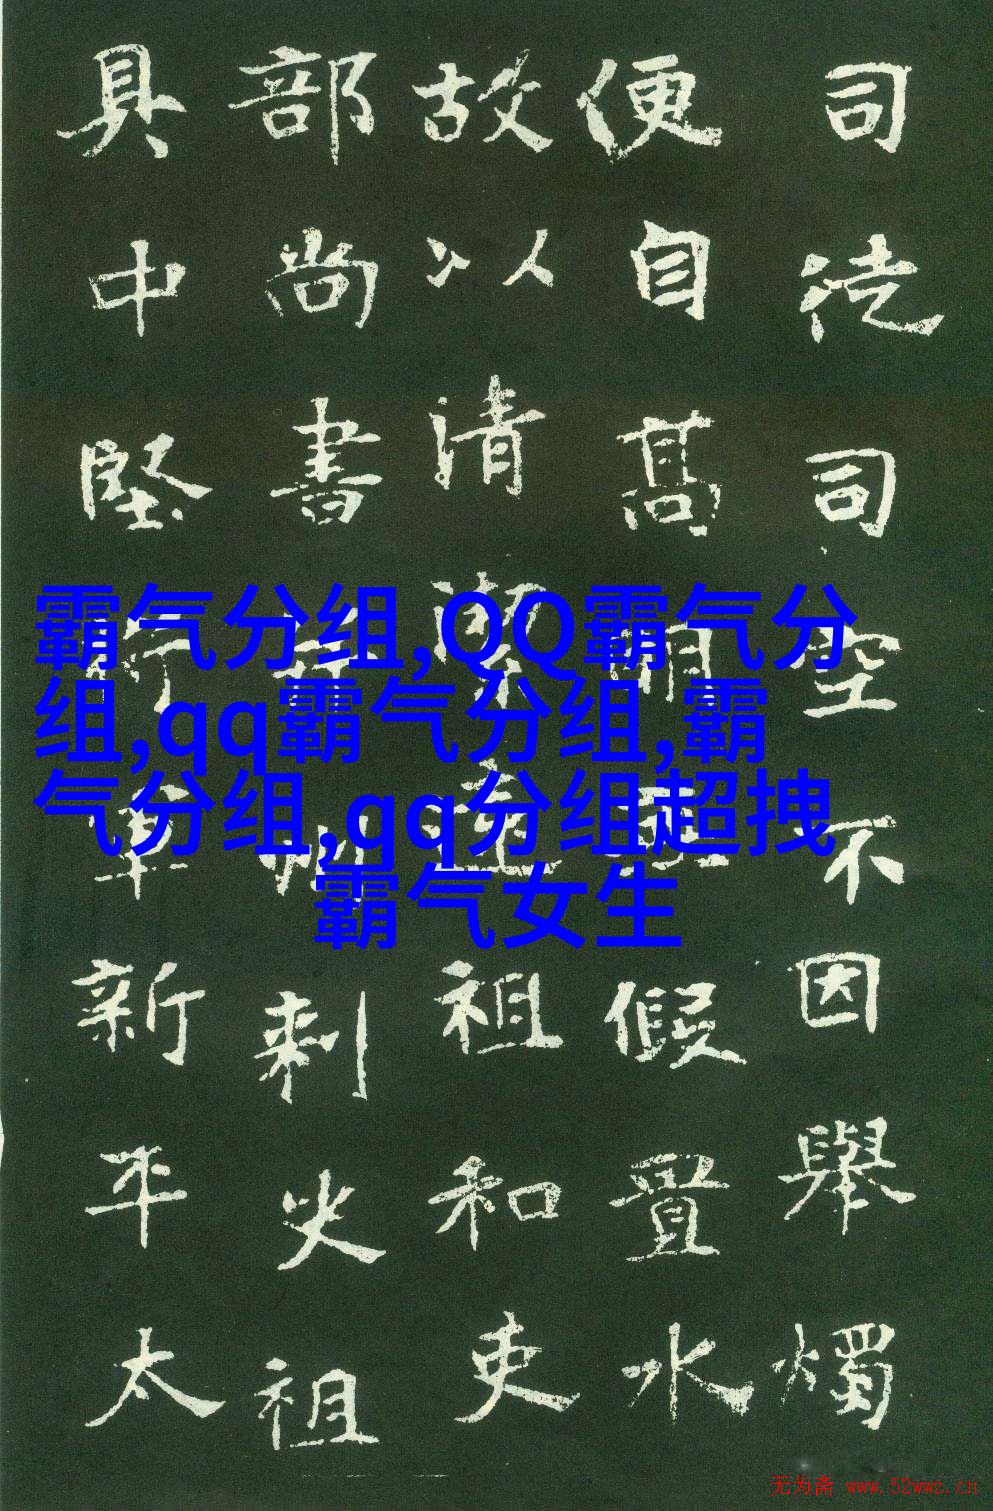 司徒司空不因舉燭
便自高明假置水
故以清潔祖和吏
部尚書州刺史祖
具中堅將軍新平太
霸气分组,QQ霸气分
组,qq霸气分组,霸
气分组,qq分组超拽
霸气女生
无为斋 www.52wwz.cn